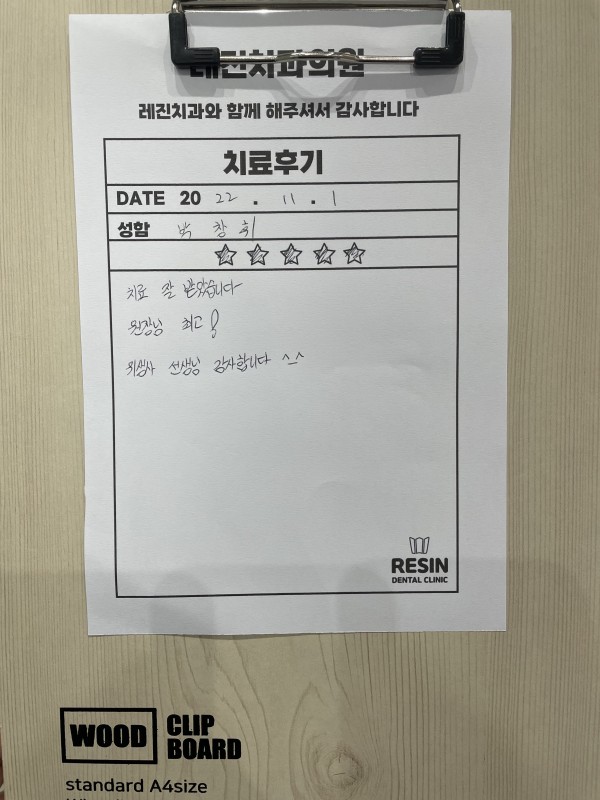 레진치과의원
레진치과와 함께 해주셔서 감사합니다
치료후기
DATE 20 22 . 11 . 1
성함 박 창 희
치료 잘 받았습니다
원장님 최고!
위생사 선생님 감사합니다 ^_^
RESIN
DENTAL CLINIC
WOOD CLIP BOARD
standard A4size